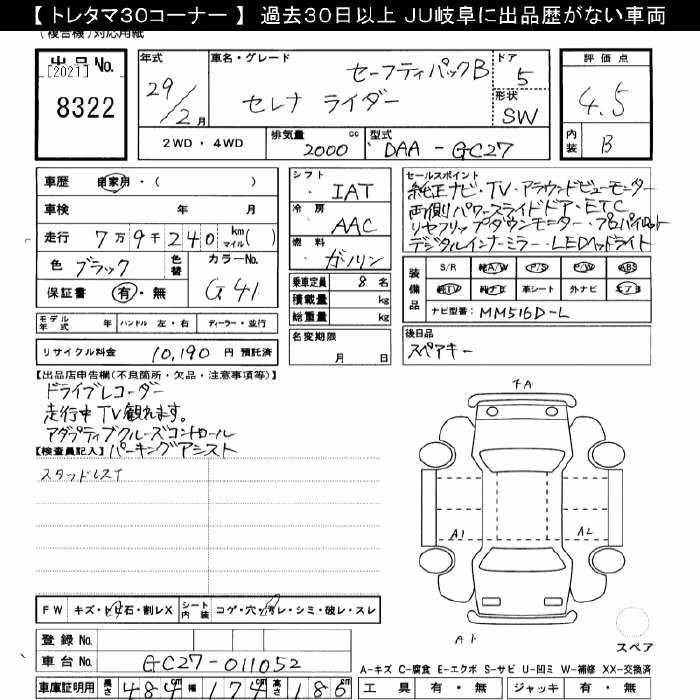 【 トレタマ30コーナー 】 過去30日以上 JU岐阜に出品歴がない車両
(複合機)対応用紙
出品 No.
[2021]
8322
年式
29/2月
車名・グレード
セーフティパックB
セレナ ライダー
ドア
5
形状
SW
評価点
4.5
内装
B
2WD・4WD
排気量
2000 cc
型式
DAA-GC27
車歴 自家用・( )
車検 年 月
走行 7万9千240 km/マイル ( )
色 ブラック 色替
カラーNo.
G41
保証書 有・無
モデル年式 年 ハンドル 左・右 ディーラー・並行
リサイクル料金 10,190 円 預託済
シフト
IAT
冷房
AAC
燃料
ガソリン
乗車定員 8 名
積載量 kg
総重量 kg
名変期限
月 日
セールスポイント
純正ナビ・TV・アラウンドビューモニター
両側パワースライドドア・ETC
リヤフリップダウンモニター・プロパイロット
デジタルインナーミラー・LEDヘッドライト
装備品
S/R 純A/W P/S P/W ABS
純TV 純ナビ 革シート 外ナビ エアB
ナビ型番: MM516D-L
後日品
スペアキー
【出品店申告欄(不良箇所・欠品・注意事項等)】
ドライブレコーダー
走行中TV観れます。
アダプティブクルーズコントロール
パーキングアシスト
【検査員記入】
スタッドレス
FA
A1
A2
A1
スペア
FW キズ・飛石・割レX シート内装 コゲ・穴・汚レ・シミ・破レ・スレ
登録 No.
車台 No. GC27-011052
車庫証明用 長さ 484cm 幅 174cm 高さ 186cm
A-キズ C-腐食 E-エクボ S-サビ U-凹ミ W-補修 XX-交換済
工具 有・無 ジャッキ 有・無